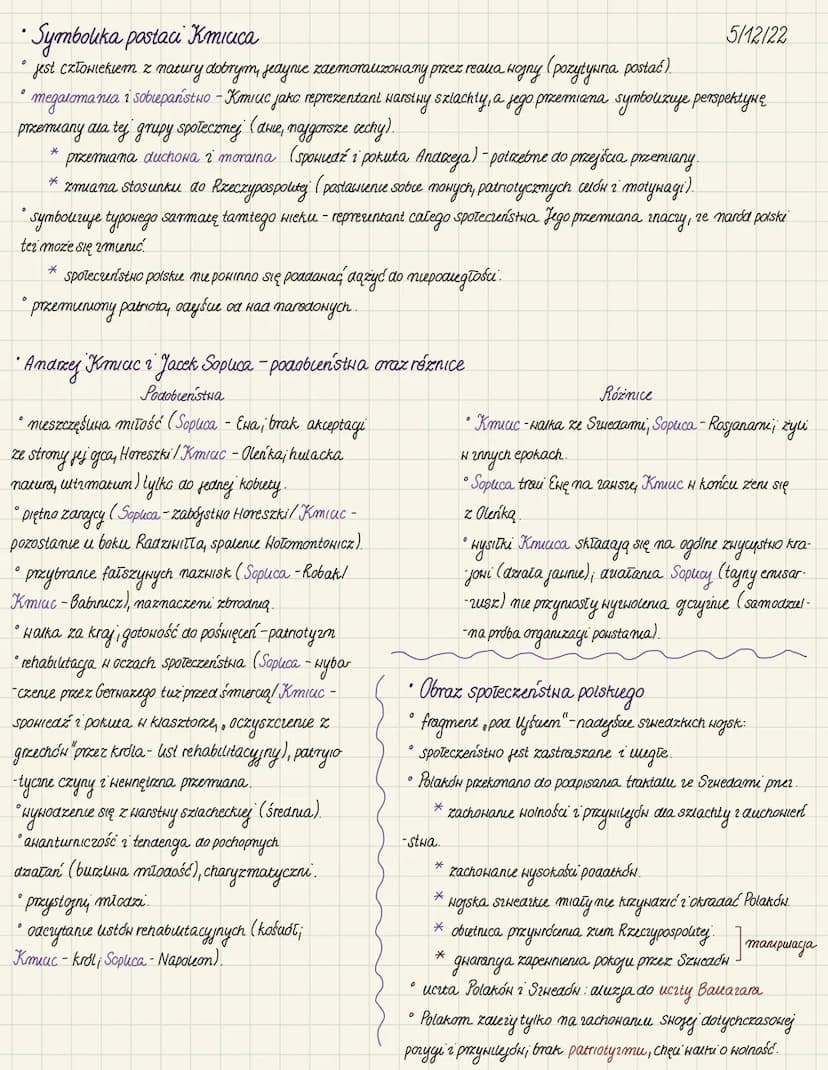 • Symbolika postaci Kmicica
5/12/22
° jest człowiekiem z natury dobrym, jedynie zdemoralizowany przez realia wojny (pozytywna postać).
° megalomania i sobiepaństwo – Kmicic jako reprezentant warstwy szlachty, a jego przemiana symbolizuje perspektywę
przemiany dla tej grupy społecznej (dwie, najgorsze cechy).
* przemiana duchowa i moralna (spowiedź i pokuta Andrzeja) – potrzebne do przejścia przemiany.
* zmiana stosunku do Rzeczypospolitej (postawienie sobie nowych, patriotycznych celów i motywacji).
° symbolizuje typowego sarmatę tamtego wieku – reprezentant całego społeczeństwa. Jego przemiana znaczy, że naród polski
też może się zmienić.
* społeczeństwo polskie nie powinno się poddawać, dążyć do niepodległości.
° przemieniony patriota, odejście od wad narodowych.
• Andrzej Kmicic i Jacek Soplica – podobieństwa oraz różnice
Podobieństwa
° nieszczęśliwa miłość (Soplica – Ewa; brak akceptacji
ze strony jej ojca, Horeszki / Kmicic – Oleńka; hulacka
natura, ultimatum) tylko do jednej kobiety.
° piętno zdrajcy (Soplica – zabójstwo Horeszki / Kmicic -
pozostanie u boku Radziwiłła, spalenie Wołomontowicz).
° przybranie fałszywych nazwisk (Soplica – Robak /
Kmicic – Babinicz), naznaczeni zbrodnią.
° walka za kraj, gotowość do poświęceń – patriotyzm
° rehabilitacja w oczach społeczeństwa (Soplica – wybar
-czenie przez Gerwazego tuż przed śmiercią / Kmicic –
spowiedź i pokuta w klasztorze, „oczyszczenie z
grzechów" przez króla – list rehabilitacyjny), patryio
-tyczne czyny i wewnętrzna przemiana.
° wywodzenie się z warstwy szlacheckiej (średnia).
° awanturniczość i tendencja do pochopnych
działań (burzliwa młodość), charyzmatyczni.
° przystojni, młodzi.
° odczytanie listów rehabilitacyjnych (kościół;
Kmicic – król; Soplica – Napoleon).
Różnice
° Kmicic – walka ze Szwedami, Soplica – Rosjanami; żyli
w innych epokach.
° Soplica traci Ewę na zawsze, Kmicic w końcu żeni się
z Oleńką.
° wysiłki Kmicica składają się na ogólne zwycięstwo kra-
-jowi (działa jawnie); działania Soplicy (tajny emisar-
-iusz) nie przyniosły wyzwolenia ojczyźnie (samodziel-
-na próba organizacji powstania).
• Obraz społeczeństwa polskiego
° fragment „pod Ujściem" – nadejście szwedzkich wojsk:
° społeczeństwo jest zastraszane i uległe.
° Polaków przekonano do podpisania traktatu ze Szwedami przez:
* zachowanie wolności i przywilejów dla szlachty i duchowień
-stwa.
* zachowanie wysokości podatków.
* wojska szwedzkie miały nie krzywdzić i okradać Polaków.
* obietnica przywrócenia ziem Rzeczypospolitej.
* gwarancja zapewnienia pokoju przez Szwedów
manipulacja
° uczta Polaków i Szwedów: aluzja do uczty Baltazara
° Polakom zależy tylko na zachowaniu swojej dotychczasowej
pozycji i przywilejów; brak patriotyzmu, chęci walki o wolność.